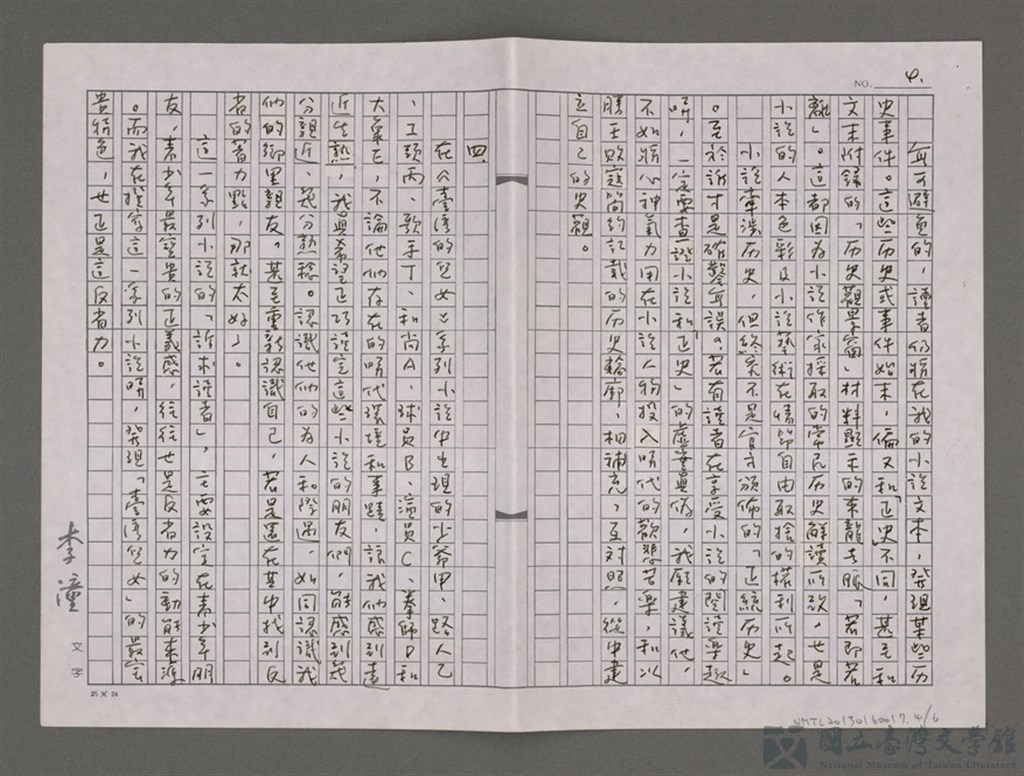 NO. 4.
無可避免的,讀者仍將在我的小說文本,發現某些歷
史事件。這些歷史或事件始末,偏又和「正史」不同,甚至和
文末附錄的「歷史觀景窗」材料顯示的來龍去脈「若即若
離」。這都因為小說作家採取的常民歷史解讀所致,也是
小說的人本色彩及小說藝術在情節自由取捨的權利所起。
小說牽涉歷史,但終究不是官方頒佈的「正統歷史」
。至於誰才是確鑿無誤?若有讀者在享受小說的閱讀樂趣
時,一定要查證小說和「正史」的虛妄與真偽,我願建議他,
不如將心神氣力用在小說人物投入時代的歡悲苦樂,和以
勝王敗寇簡約記載的歷史輪廓,相補充,互對照,從中建
立自己的史觀。
四、
在《臺灣的兒女》系列小說中出現的少爺甲、路人乙
、工頭丙、歌手丁、和尚A、球員B、演員C、拳師D和
大氣E,不論他們存在的時代環境和事蹟,讓我們感到遠
近生熟,我真希望正巧讀完這些小說的朋友們,能感到幾
分親近、幾分熟稔。認識他們的為人和際遇,如同認識我
們的鄉里親友。甚至重新認識自己,若是還在其中找到反
省的著力點,那就太好了。
這一系列小說的「訴求讀者」,主要設定在青少年朋
友,青少年最寶貴的正義感,往往也是反省力的動能來源
。而我在撰寫這一系列小說時,發現「臺灣兒女」的最寶
貴特色,也正是這反省力。
李潼
文字
25 × 24
NMTL20130160017.4/6
國立臺灣文學館
National Museum of Taiwan Literature